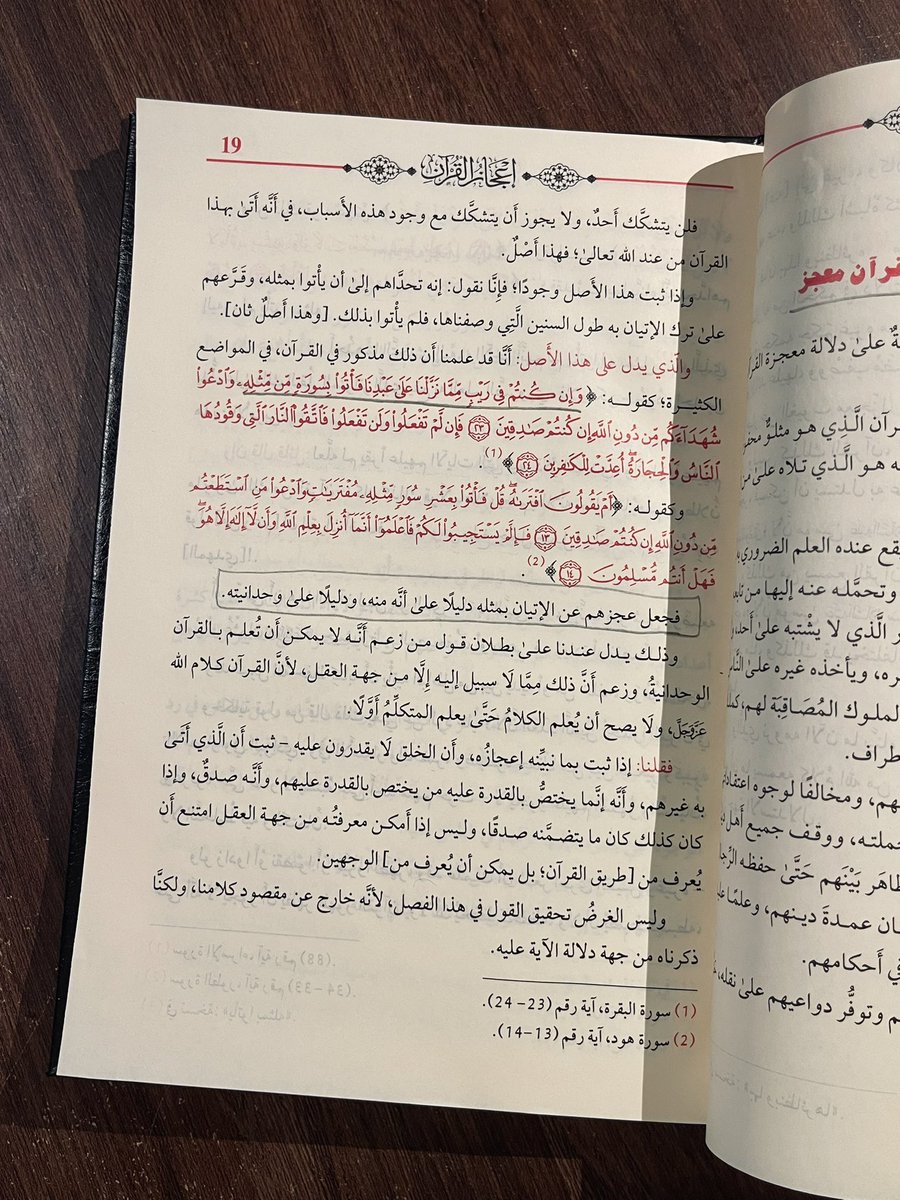 19
إعجاز القرآن
فلن يتشكَّك أحدٌ، ولا يجوز أن يتشكَّك مع وجود هذه الأسباب، في أنَّه أتىٰ بهذا
القرآن من عند الله تعالىٰ؛ فهذا أصْلٌ.
وإذا ثبت هذا الأصل وجودًا؛ فإنَّا نقول: إنه تحدَّاهم إلىٰ أن يأتوا بمثله، وقرَّعهم
علىٰ ترك الإتيان به طول السنين الَّتي وصفناها، فلم يأتوا بذلك. [وهذا أصلٌ ثان].
والَّذي يدل علىٰ هذا الأصل: أنَّا قد علمنا أن ذلك مذكور في القرآن، في المواضع
الكثيرة؛ كقوله: ﴿وَإِن كُنتُمْ فِي رَيْبٍ مِّمَّا نَزَّلْنَا عَلَىٰ عَبْدِنَا فَأْتُوا۟ بِسُورَةٍ مِّن مِّثْلِهِۦ وَٱدْعُوا۟
شُهَدَآءَكُم مِّن دُونِ ٱللَّهِ إِن كُنتُمْ صَٰدِقِينَ ٢٣ فَإِن لَّمْ تَفْعَلُوا۟ وَلَن تَفْعَلُوا۟ فَٱتَّقُوا۟ ٱلنَّارَ ٱلَّتِي وَقُودُهَا
ٱلنَّاسُ وَٱلْحِجَارَةُ أُعِدَّتْ لِلْكَٰفِرِينَ ٢٤﴾(1).
وكقوله: ﴿أَمْ يَقُولُونَ ٱفْتَرَىٰهُ قُلْ فَأْتُوا۟ بِعَشْرِ سُوَرٍ مِّثْلِهِۦ مُفْتَرَيَٰتٍ وَٱدْعُوا۟ مَنِ ٱسْتَطَعْتُم
مِّن دُونِ ٱللَّهِ إِن كُنتُمْ صَٰدِقِينَ ١٣ فَإِلَّمْ يَسْتَجِيبُوا۟ لَكُمْ فَٱعْلَمُوٓا۟ أَنَّمَآ أُنزِلَ بِعِلْمِ ٱللَّهِ وَأَن لَّآ إِلَٰهَ إِلَّا هُوَ
فَهَلْ أَنتُم مُّسْلِمُونَ ١٤﴾(2).
فجعل عجزهم عن الإتيان بمثله دليلًا علىٰ أنَّه منه، ودليلًا علىٰ وحدانيته.
وذلك يدل عندنا علىٰ بطلان قول من زعم أنَّه لا يمكن أن تُعلم بالقرآن
الوحدانيةُ، وزعم أنَّ ذلك مِمَّا لَا سبيل إليه إلَّا من جهة العقل، لأنَّ القرآن كلام الله
عَزَّوَجَلَّ، ولَا يصح أن يُعلم الكلامُ حَتَّىٰ يعلم المتكلِّمُ أوَّلًا.
فقلنا: إذا ثبت بما نبيِّنه إعجازُه، وأن الخلق لَا يقدرون عليه – ثبت أن الَّذي أتَىٰ
به غيرهم، وأنَّه إنَّما يختصُّ بالقدرة عليه من يختص بالقدرة عليهم، وأنَّه صدقٌ، وإذا
كان كذلك كان ما يتضمَّنه صدقًا، وليس إذا أمكن معرفتُه من جهة العقل امتنع أن
يُعرف من [طريق القرآن؛ بل يمكن أن يُعرف من] الوجهين.
وليس الغرضُ تحقيق القول في هذا الفصل، لأنَّه خارج عن مقصود كلامنا، ولكنَّا
ذكرناه من جهة دلالة الآية عليه.
(1) سورة البقرة، آية رقم (23–24).
(2) سورة هود، آية رقم (13–14).
معجز
علىٰ دلالة معجزة
الَّذي هو مثلوٌّ
هو الَّذي تلاه علىٰ من
عنده العلم الضروري
وتحمَّله عنه إليها من
الَّذي لا يشْتبه علىٰ أحد
ويأخذه غيره علىٰ
الملوك المُصَاقِبَة لهم،
ومخالفًا لوجوه
ووقف جميع أهل
بَيْنَهم حَتَّىٰ حفظه
عمدةَ دينهم،
في أحكامهم.
وتوفُّر دواعيهم علىٰ نقله،